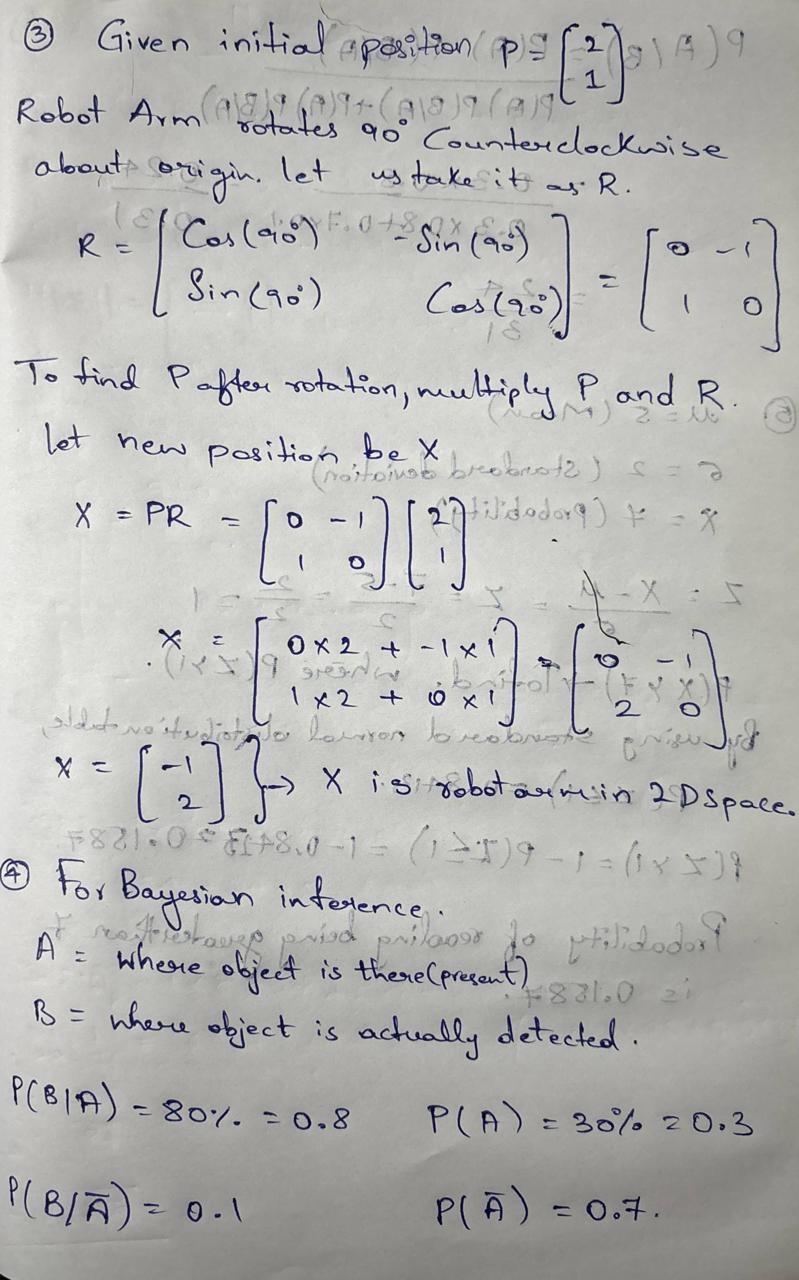 ③ Given initial position p = [2
1]
Robot Arm rotates 90° Counterclockwise
about origin. let us take it as R.
R = [Cos(90°) -Sin(90°)
Sin(90°) Cos(90°)] = [0 -1
1 0]
To find P after rotation, multiply P and R.
let new position be X
X = PR = [0 -1
1 0] [2
1]
X = [0×2 + -1×1
1×2 + 0×1] = [0 -1
2 0]
X = [-1
2] } → X is robot arm in 2D Space.
④ For Bayesian inference.
A = where object is there (present)
B = where object is actually detected.
P(B|A) = 80% = 0.8 P(A) = 30% = 0.3
P(B/Ā) = 0.1 P(Ā) = 0.7.